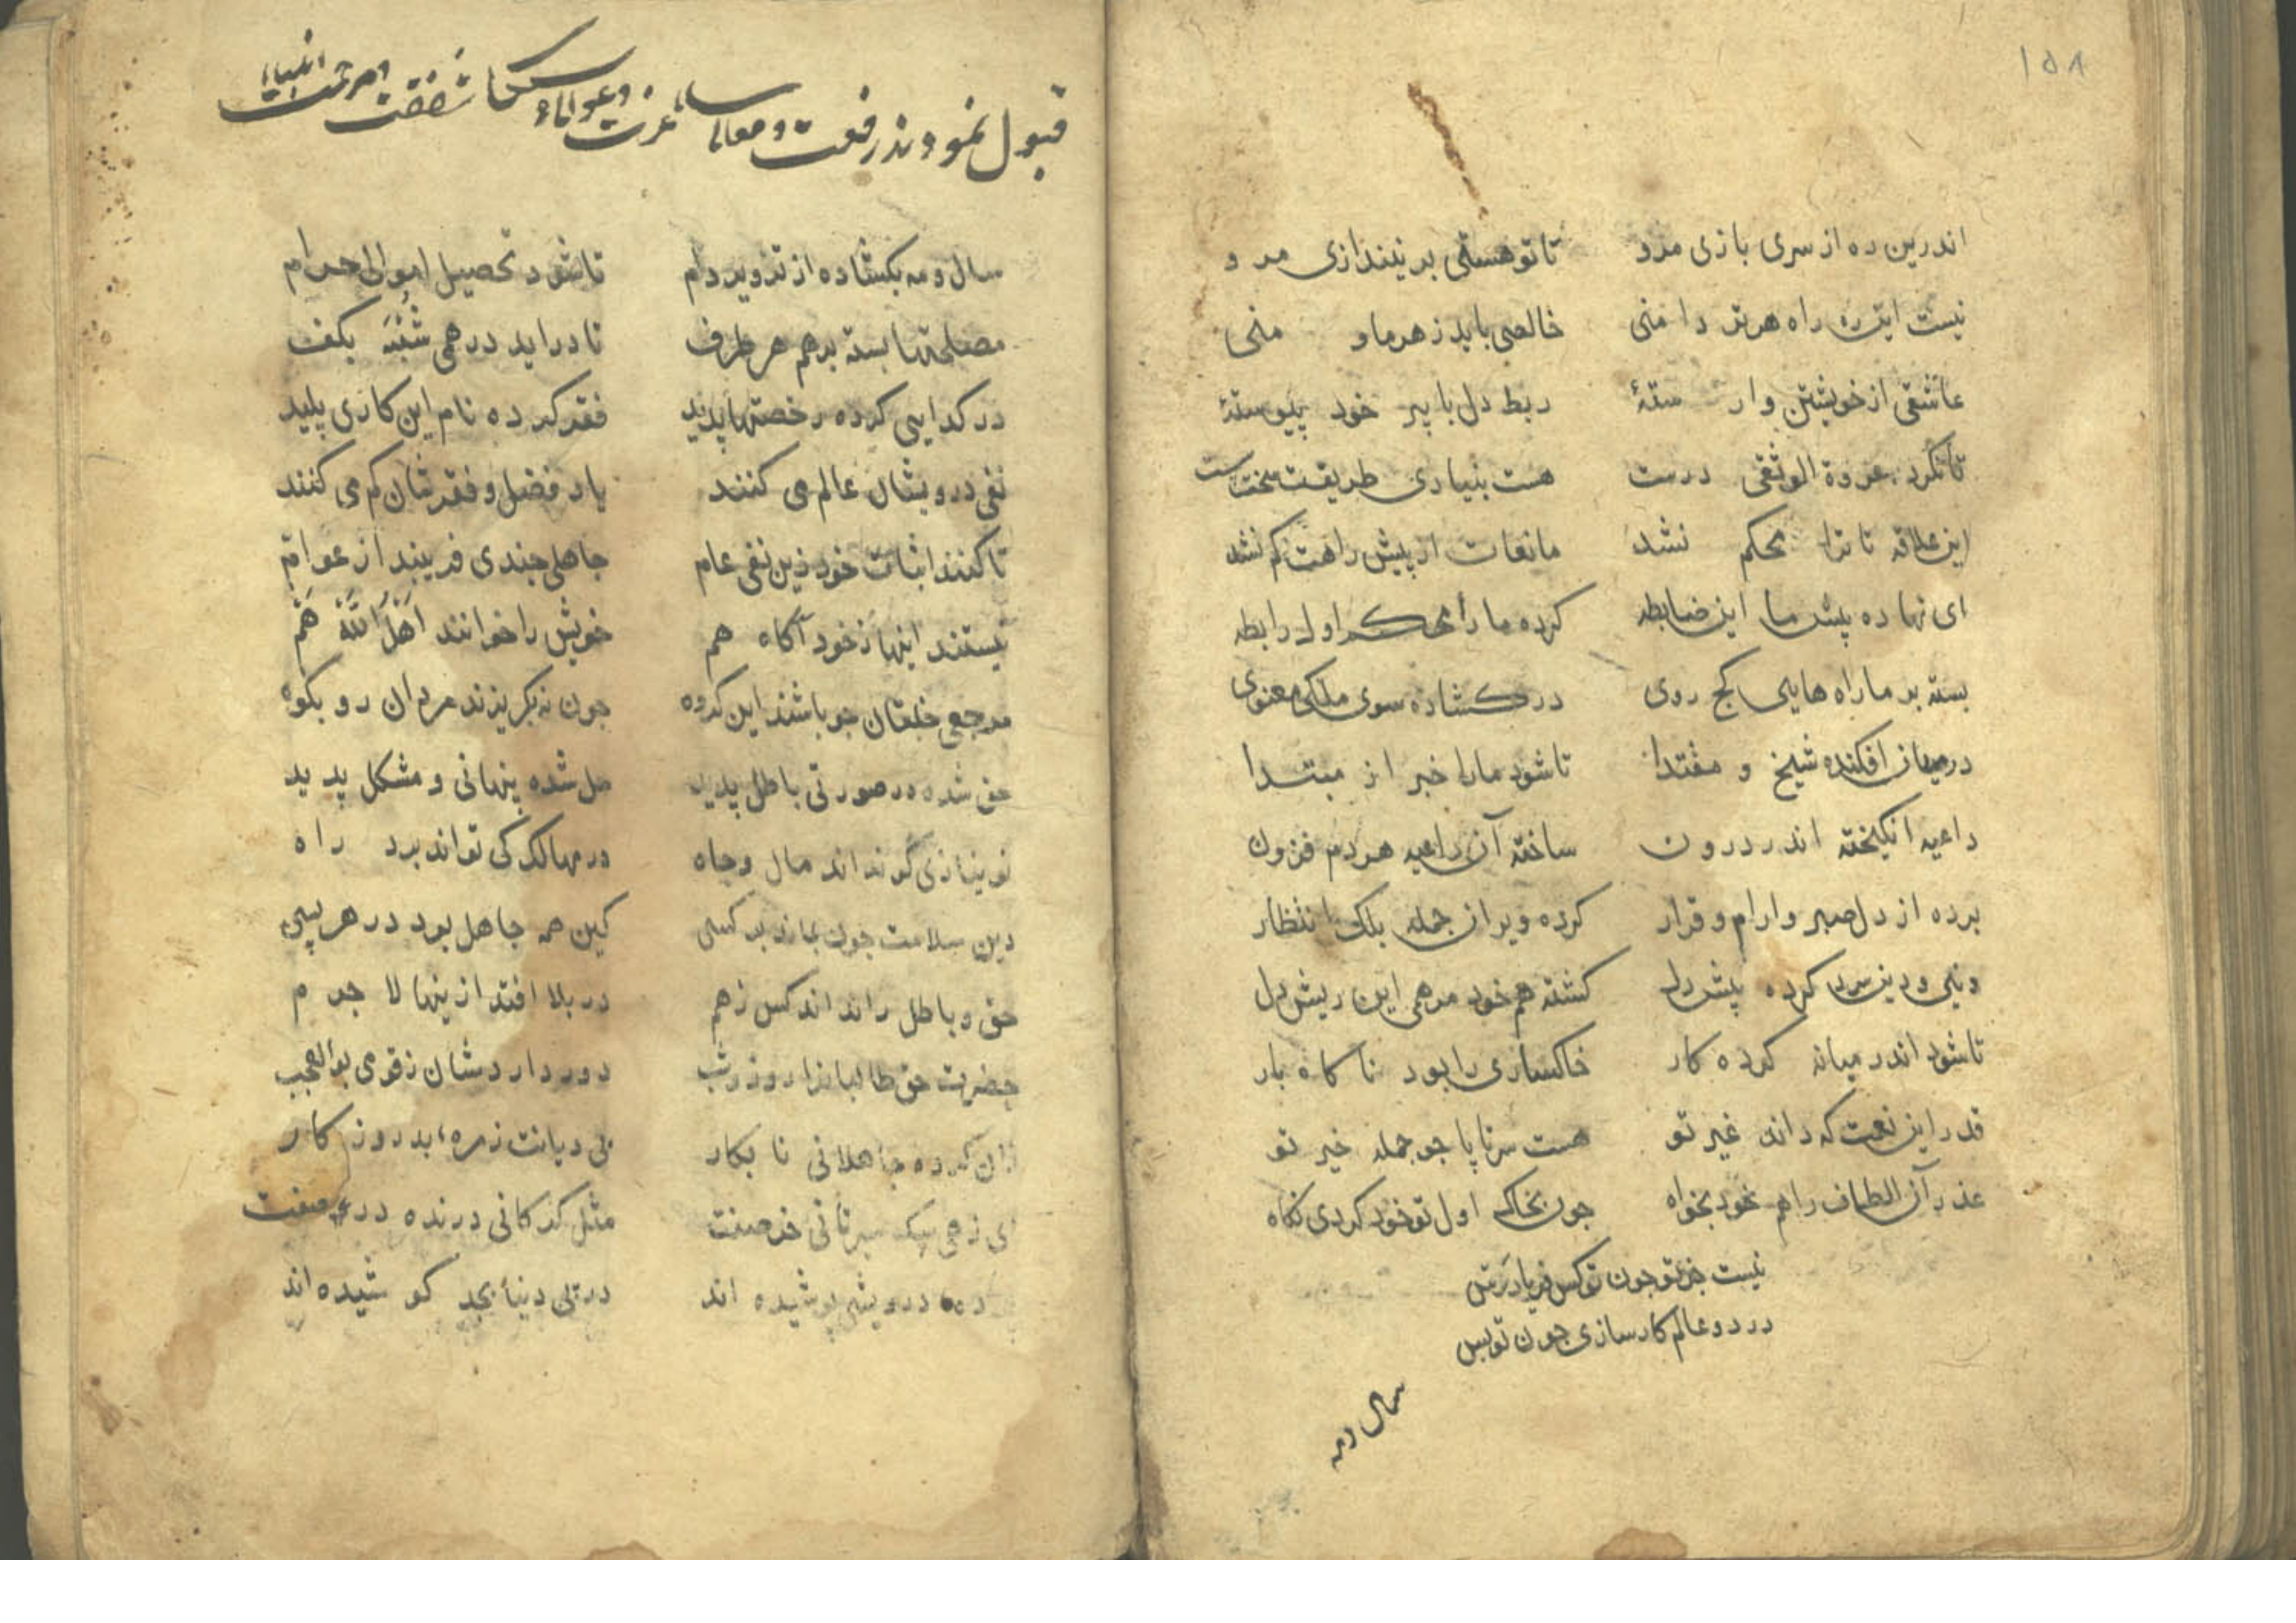 ١٥٨
اندرین ره از سری بازی مرو تا تو هستی بر نیندازی مرو
نیست این ره راه هر تر دامنی خالصی باید ز هر ما و منی
عاشقی از خویشتن وارستهٔ ربط دل با پیر خود پیوستهٔ
تا نکرد عروة الوثقی درست هست بنیادی طریقت سخت سست
این علاقه تا ترا محکم نشد مانعات از پیش راهت کم نشد
ای نهاده پیش ما این ضابطه کرده ما را محکم اول رابطه
بسته بر ما راه هایی کج روی در کشاده سوی ملک معنوی
در میان افکنده شیخ و مقتدا تا شود ما را خبر از مبتدا
داعیه انکیخته اندر درون ساخته آن داعیه هر دم فزون
برده از دل صبر و ارام و قرار کرده ویران جمله بلک انتظار
دنیی و دین سرد کرده پیش دل کشته هم خود مرهمی این ریش دل
تا شود اندر میانه کرده کار خاکساری را بود تا کاه بار
قدر این نعمت که داند غیر تو هست سر تا پا جو جمله خیر تو
عذر آن الطاف را هم خود بخواه جون بخاک اول تو خود کردی نکاه
نیست جز تو جون تو کس فریادرس
در دو عالم کار سازی جون تو بس
سال و مه
قبول نمودند رفعت و معالی عزت و عوالی شفقت و مرحمت
سال و مه بکشاده از تزویر دام تا شود تحصیل اموال حرام
مصلحتها بسته بر هم هر طرف تا دراید درهمی شبهه بکف
در کدایی کرده رخصتها پدید فقر کرده نام این کاری پلید
نفی درویشان عالم می کنند یاد فضل و فقر شان کم می کنند
تا کنند اثبات خود زین نفی عام جاهلی جندی فریبند از عوام
نیستند اینها ز خود آکاه هم خویش را خوانند اهل الله هم
مرجعی خلقان جو باشند این کروه جون نه بکریزند مردان رو بکوه
حق شده در صورتی باطل پدید حل شده پنهانی و مشکل پدید
نو نیازی کو نداند مال و جاه در مهالک کی تواند برد راه
دین سلامت جون بماند بر کسی کین همه جاهل بود در هر پسی
حق و باطل را نداند کس ز هم در بلا افتد ازینها لا جرم
حضرت حق طالبانرا روز و شب دور دارد شان ز قومی بوالعجب
زان کروه جاهلانی نا بکار بی دیانت زمره بد روز کار
ای زهی یک سیرتانی خر صفت مثل کرکانی درنده در صفت
درویشی پوشیده اند در پی دنیا بجد کوشیده اند